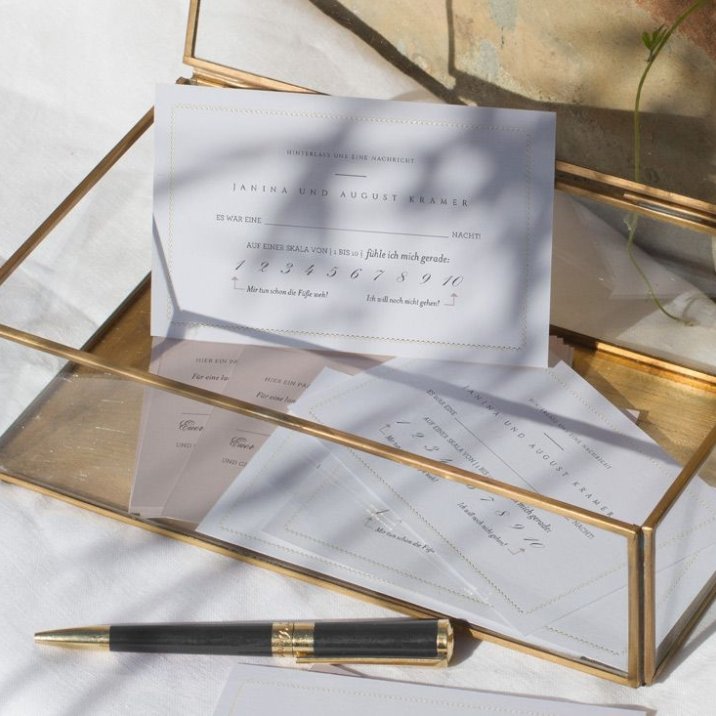 HINTERLASS UNS EINE NACHRICHT
JANINA UND AUGUST KRAMER
ES WAR EINE NACHT!
AUF EINER SKALA VON 1 BIS 10 fühle ich mich gerade:
1 2 3 4 5 6 7 8 9 10
Mir tun schon die Füße weh! Ich will noch nicht gehen!
HIER EIN PA
Für eine la
Eure
UND
HIER EIN PAR
Für eine lan
Eure
UND GA
HINTERLASS UNS EINE NACHRICHT
JANINA UND AUGUST KRAMER
ES WAR EINE NACHT!
AUF EINER SKALA VON 1 BIS fühle ich mich gerade:
1 2 3 4 8 9 10
Mir tun schon Ich will noch nicht gehen!
1
Mir tun schon die Füße